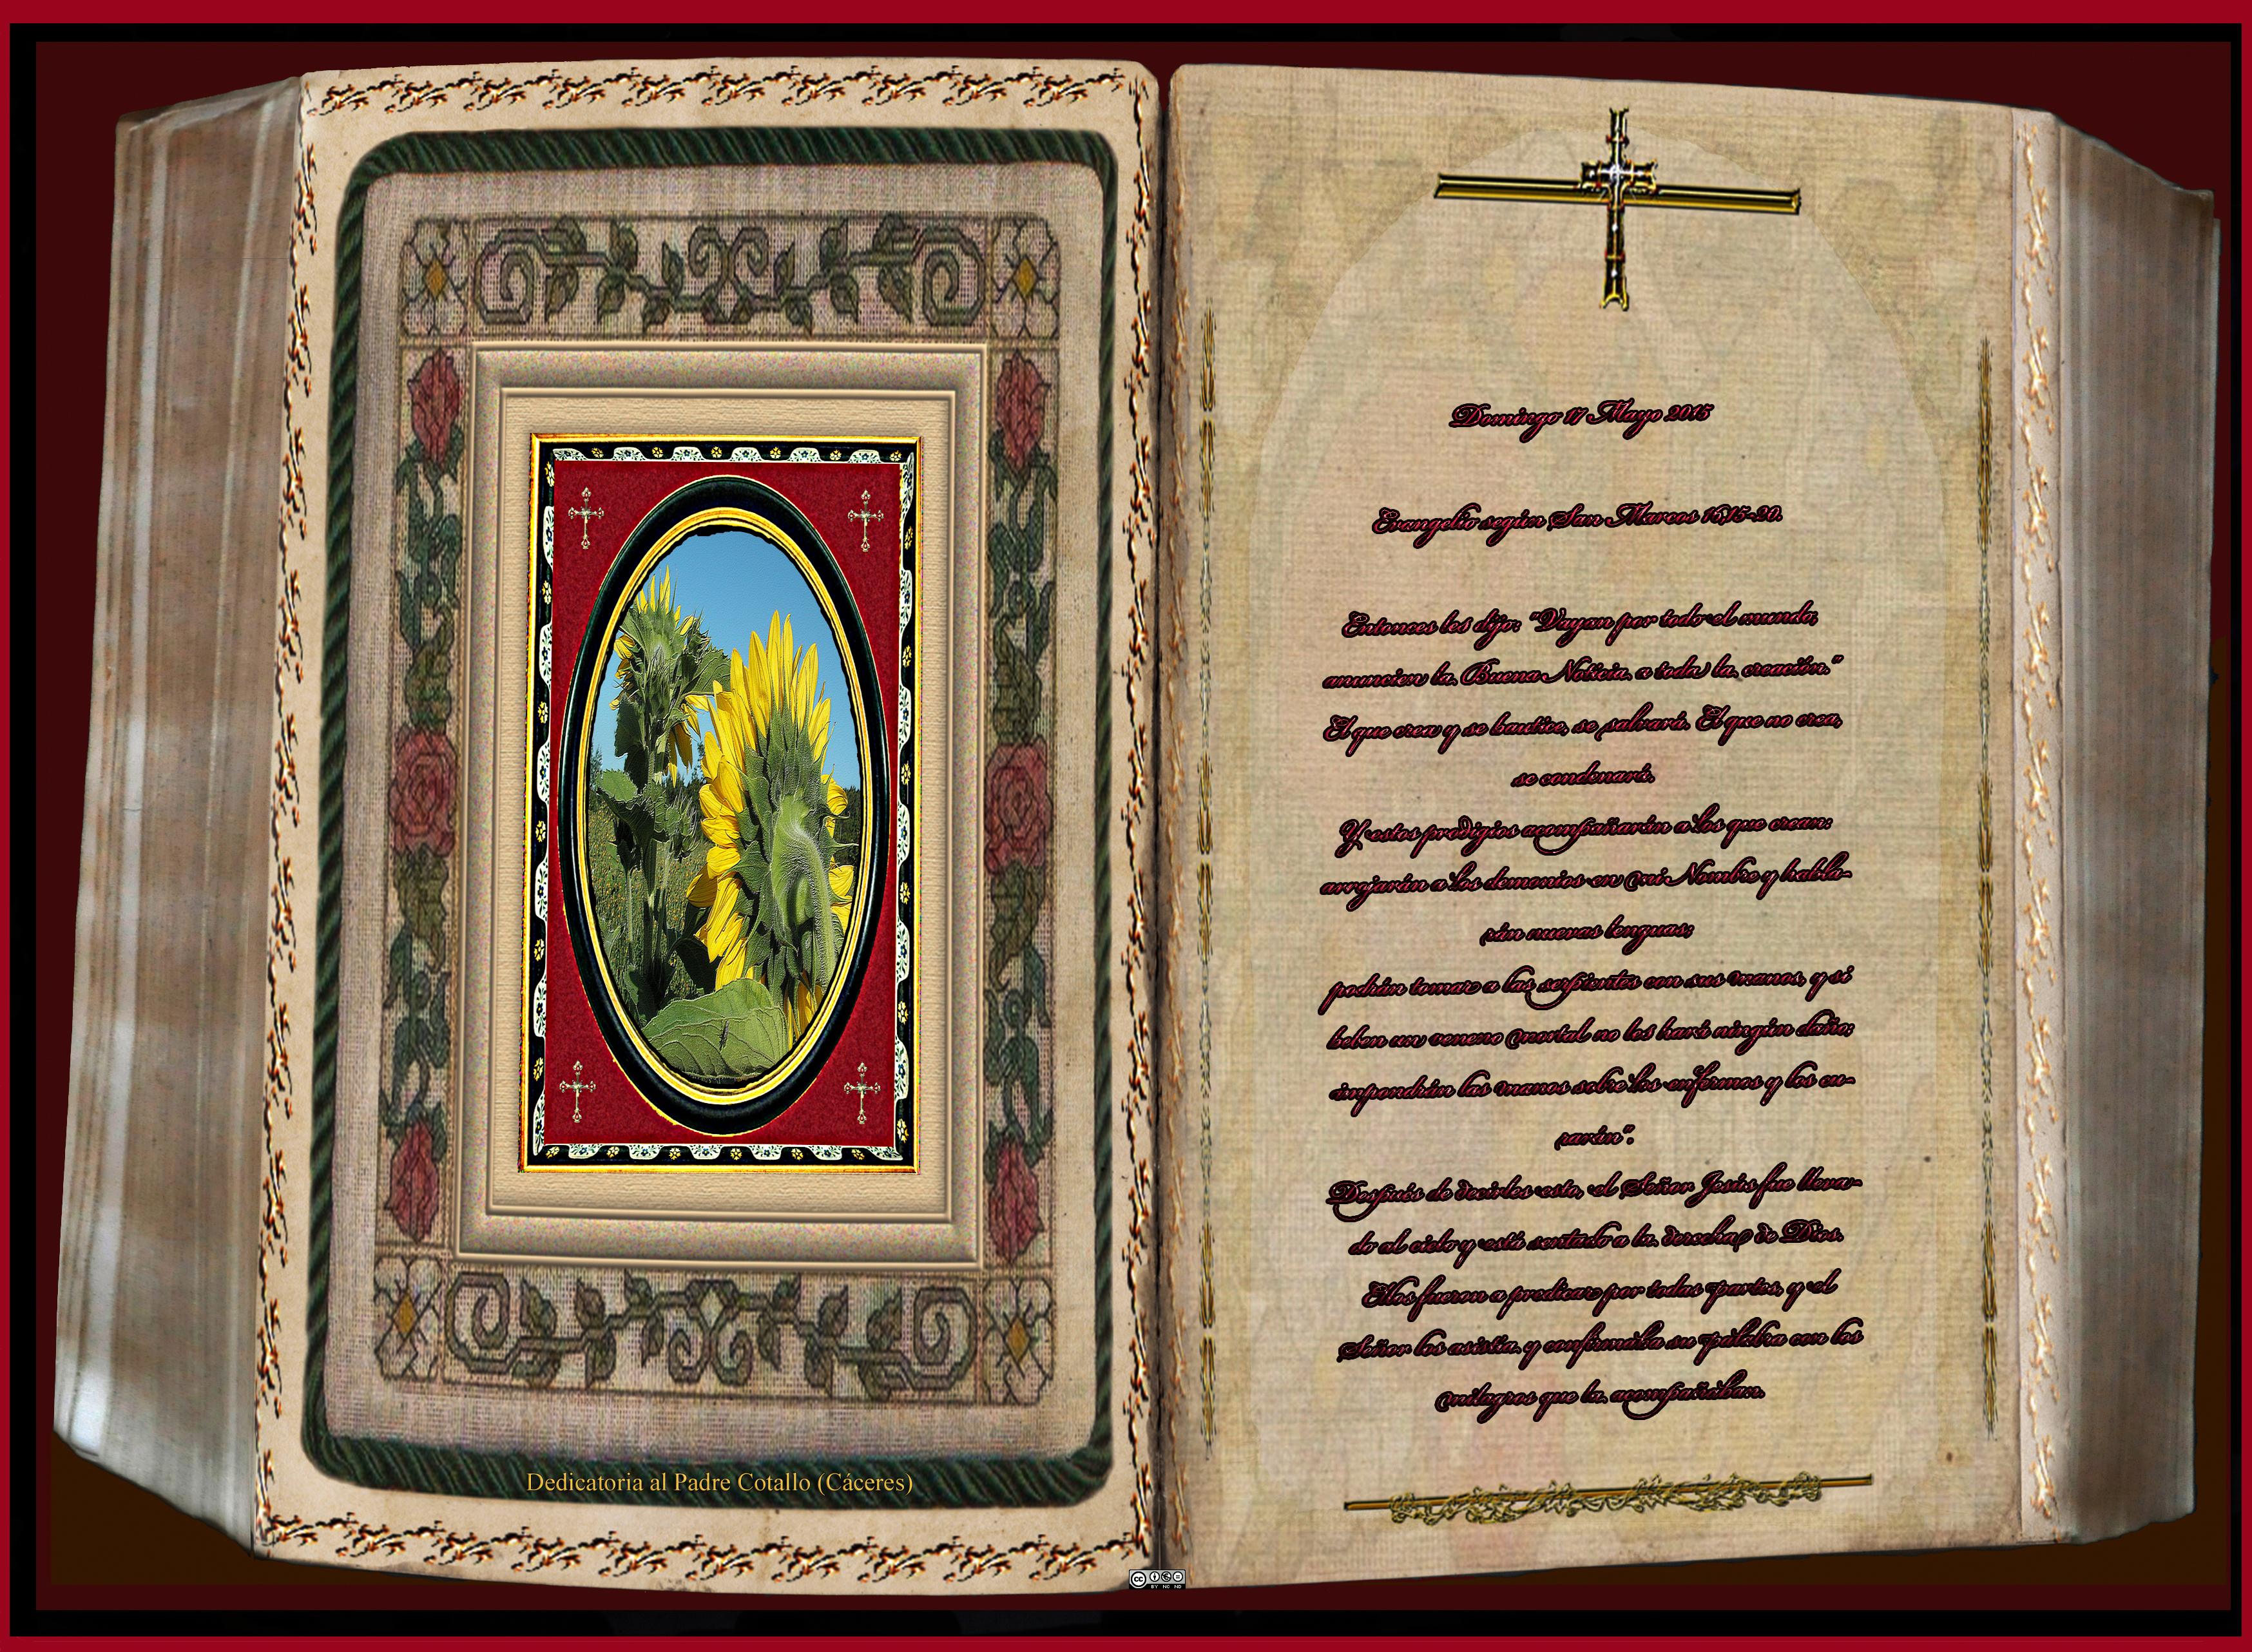 Dedicatoria al Padre Cotallo (Cáceres)
Domingo 17 Mayo 2015
Evangelio según San Marcos 16,15-20.
Entonces les dijo: "Vayan por todo el mundo,
anuncien la Buena Noticia a toda la creación."
El que crea y se bautice, se salvará. El que no crea,
se condenará.
Y estos prodigios acompañarán a los que crean:
arrojarán a los demonios en mi Nombre y habla-
rán nuevas lenguas;
podrán tomar a las serpientes con sus manos, y si
beben un veneno mortal no les hará ningún daño;
impondrán las manos sobre los enfermos y los cu-
rarán".
Después de decirles esto, el Señor Jesús fue lleva-
do al cielo y está sentado a la derecha de Dios.
Ellos fueron a predicar por todas partes, y el
Señor los asistía y confirmaba su palabra con los
milagros que la acompañaban.
cc
BY NC ND